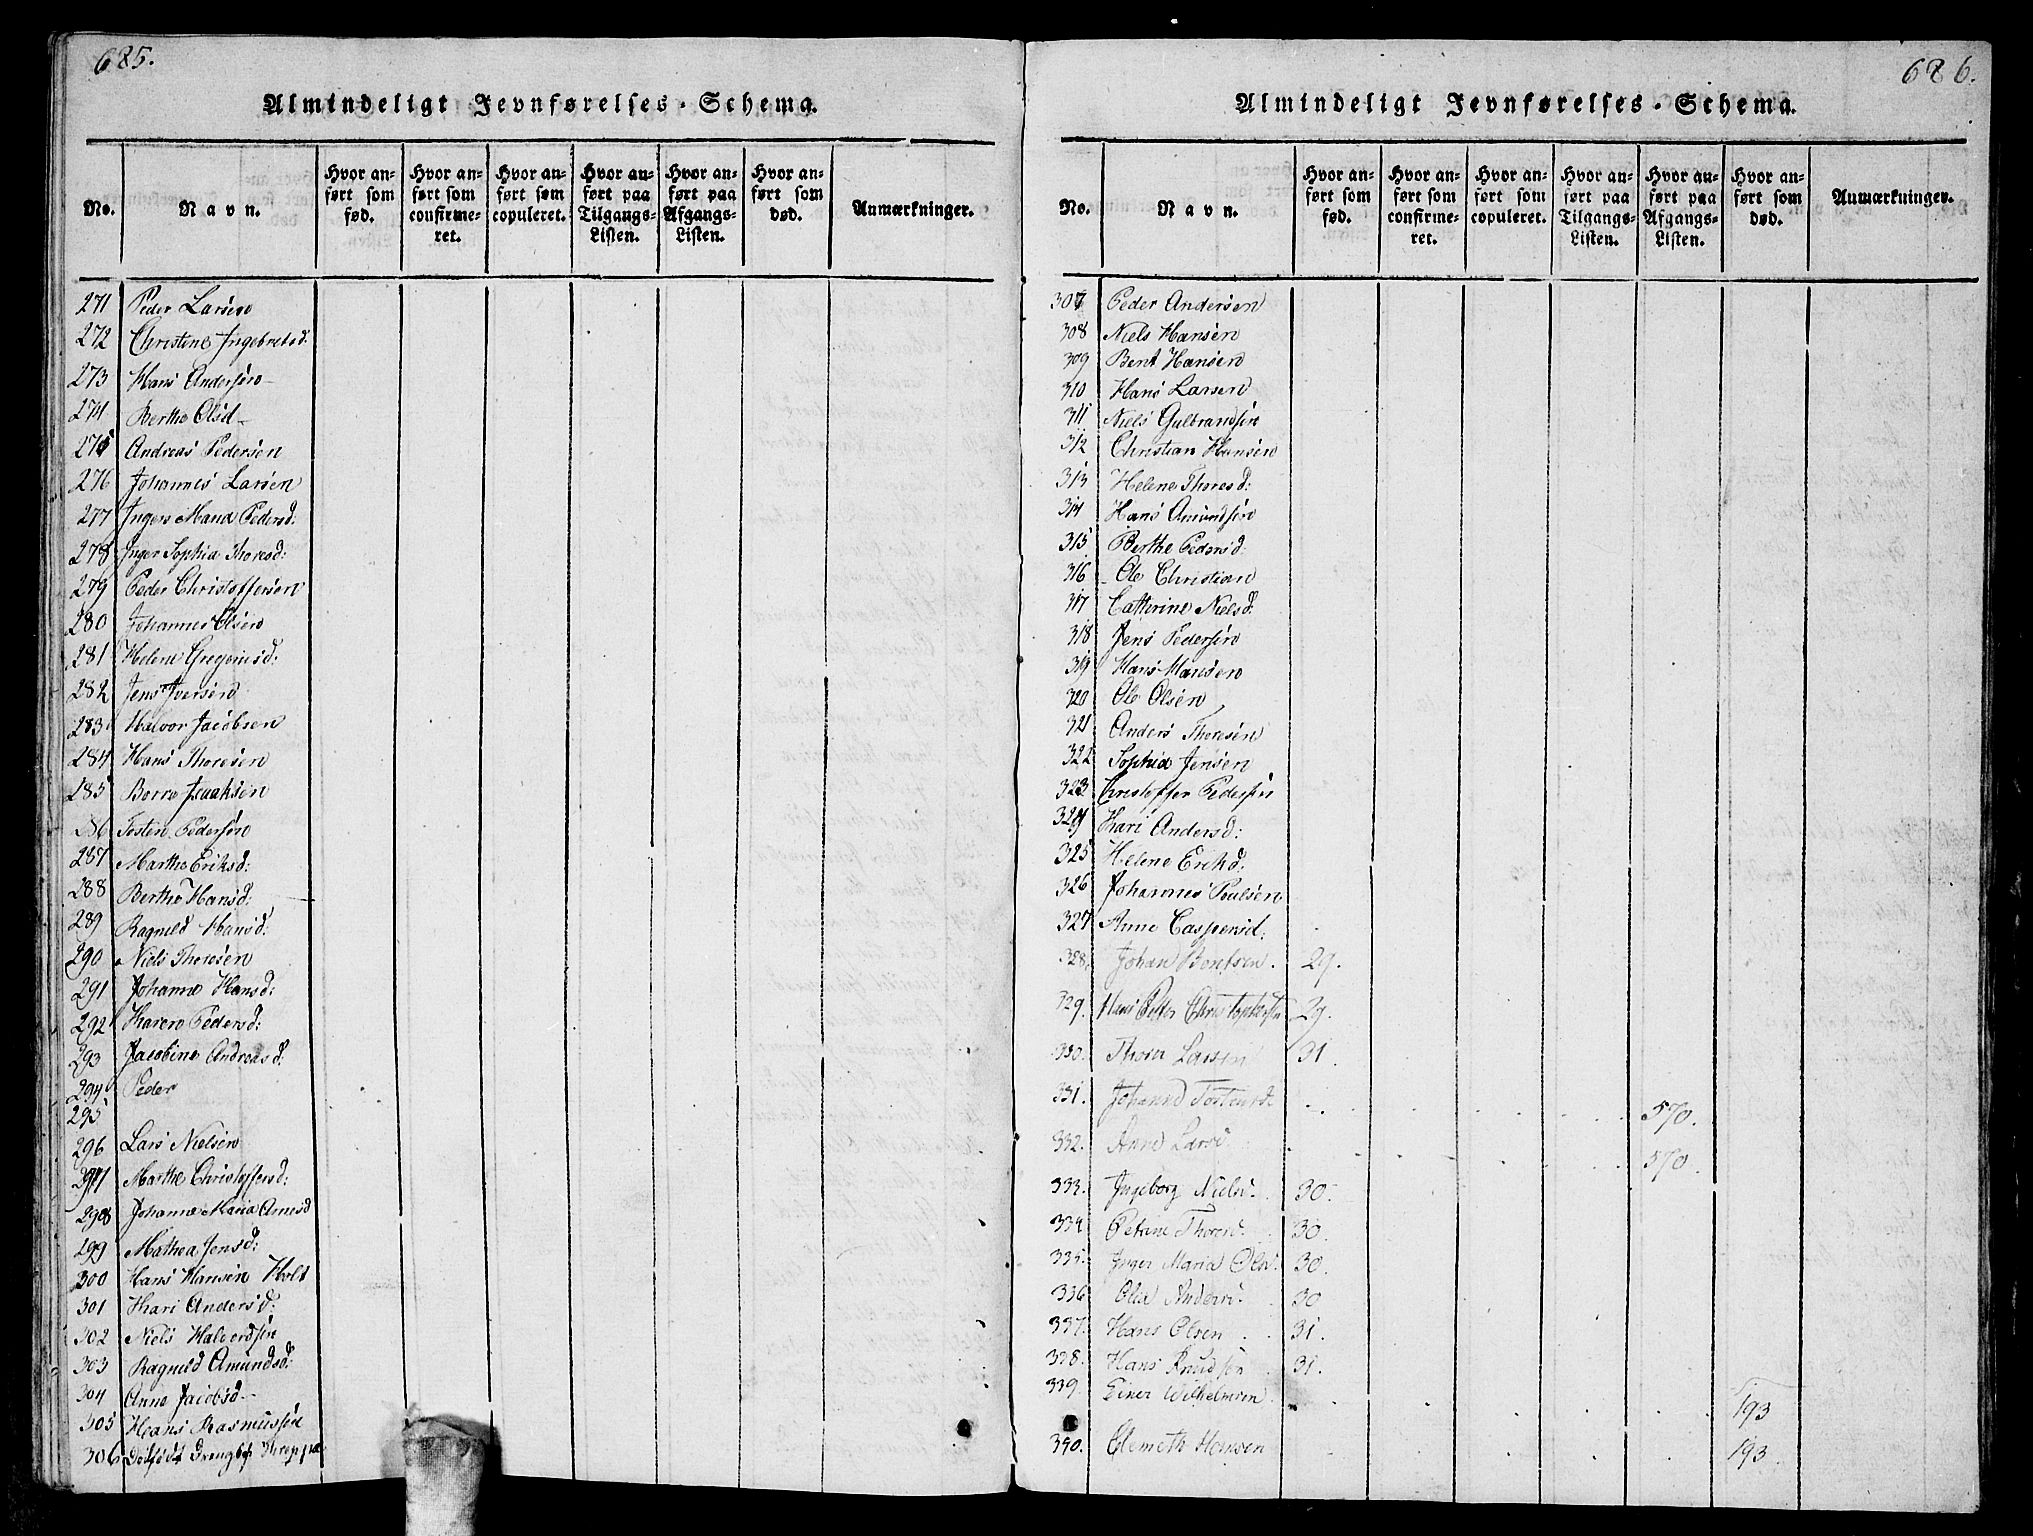 685.
Almindeligt Jevnførelses-Schema.
No.
Navn.
Hvor anført som fød.
Hvor anført som confirmeret.
Hvor anført som copuleret.
Hvor anført paa Tilgangs-Listen.
Hvor anført paa Afgangs-Listen.
Hvor anført som død.
Anmærkninger.
271 Peder Larsen
272 Christine Ingebretsd:
273 Hans Andersen
274 Berthe Olsd
275 Andreas Pedersen
276 Johannes Larsen
277 Inger Maria Pedersd:
278 Inger Sophia Thoresd:
279 Peder Christoffersen
280 Johannes Olsen
281 Helene Gregersd:
282 Jens Iversen
283 Halvor Jacobsen
284 Hans Thoresen
285 Borre Isaaksen
286 Tosten Pedersen
287 Marthe Eriksd:
288 Berthe Hansd:
289 Ragnild Hansd:
290 Niels Thoresen
291 Johanne Hansd:
292 Karen Pedersd:
293 Jacobine Andreasd:
294 Peder
295
296 Lars Nielsen
297 Marthe Christoffersd:
298 Johanne Maria Arnesd
299 Mathea Jensd:
300 Hans Hansen Holt
301 Kari Andersd:
302 Niels Halvordsen
303 Ragnild Amundsd:
304 Anne Jacobsd
305 Hans Rasmussen
306 Dødfødt
686.
Almindeligt Jevnførelses-Schema.
No.
Navn.
Hvor anført som fød.
Hvor anført som confirmeret.
Hvor anført som copuleret.
Hvor anført paa Tilgangs-Listen.
Hvor anført paa Afgangs-Listen.
Hvor anført som død.
Anmærkninger.
307 Peder Andersen
308 Niels Hansen
309 Bent Hansen
310 Hans Larsen
311 Niels Gulbrandsen
312 Christian Hansen
313 Helene Thoresd:
314 Hans Amundsen
315 Berthe Pedersd:
316 Ole Christian
317 Catherine Nielsd:
318 Jens Pedersen
319 Hans Hansen
320 Ole Olsen
321 Anders Thoresen
322 Sophia Jensen
323 Christoffer Pedersen
324 Kari Andersd:
325 Helene Eriksd:
326 Johannes Poulsen
327 Anne Caspersd:
328. Johan Bentsen. 29.
329. Hans Peder Christophersen 29.
330. Thorer Larsen 31.
331. Johanne Tostensd. 570.
332. Anne Larsd. 570.
333. Ingeborg Nielsd. 30.
334 Petrine Thoresd. 30.
335. Inger Maria Olsd. 30.
336 Olea Andersd. 30
337. Hans Olsen 31.
338. Hans Knudsen 31.
339 Einer Wilhelmsen 193
340. Clemeth Hansen 193.